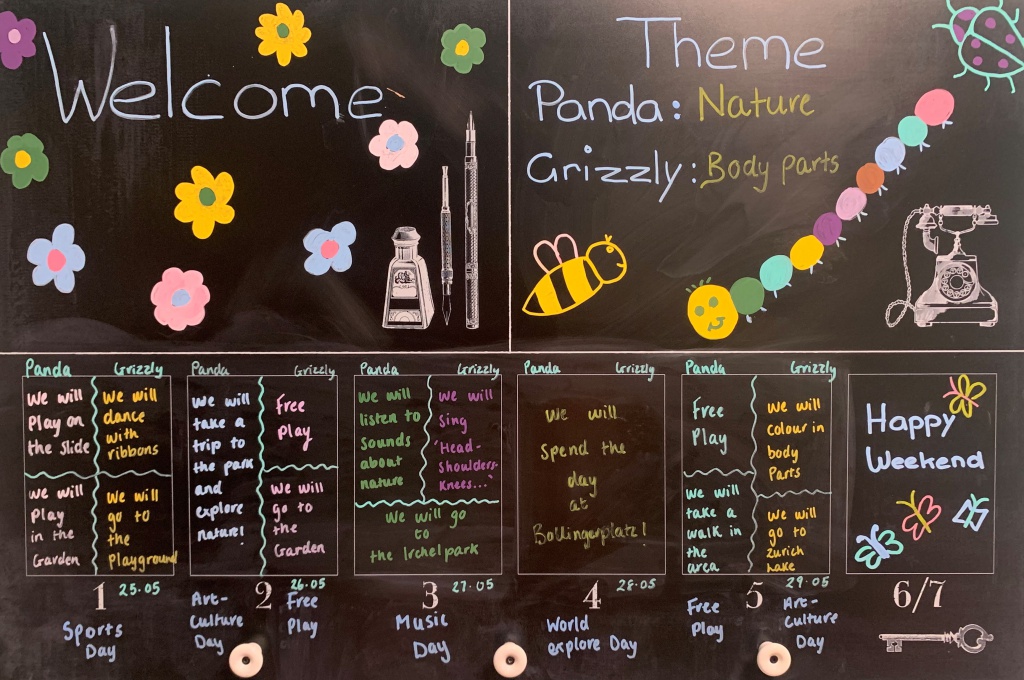 Welcome
Theme
Panda: Nature
Grizzly: Body parts
Panda Grizzly
We will
Play on
the Slide
We will
dance
with
ribbons
We will
Play
in the
Garden
We will
go to
the
Playground
1 25.05
Sports
Day
Panda Grizzly
We will
take a
trip to
the park
and
explore
nature!
Free
Play
We will
go to
the
Garden
2 26.05
Art-
Culture
Day
Free
Play
Panda Grizzly
We will
listen to
Sounds
about
nature
We will
Sing
'Head-
Shoulders-
Knees...'
We will go
to
the Irchelpark
3 27.05
Music
Day
Panda Grizzly
We will
Spend the
day
at
Bollingerplatz!
4 28.05
World
explore Day
Panda Grizzly
Free
Play
We will
Colour in
body
Parts
We will
take a
walk in
the
area
We will
go to
Zurich
Lake
5 29.05
Free
Play
Art-
Culture
Day
Happy
Weekend
6/7